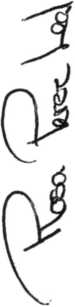 Rosa Perez Leal